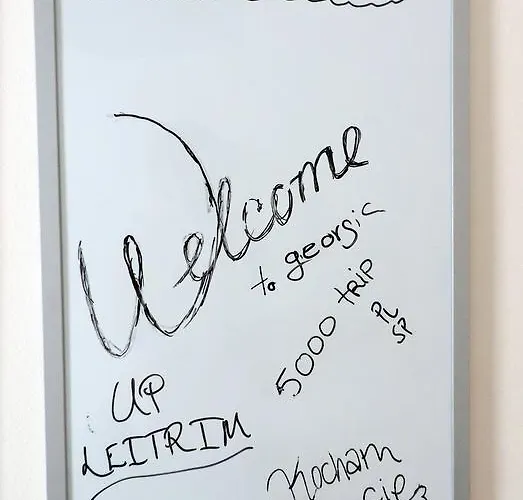 Welcome
to georgia
5000 trip
PL
SP
UP
LEITRIM
Kocham